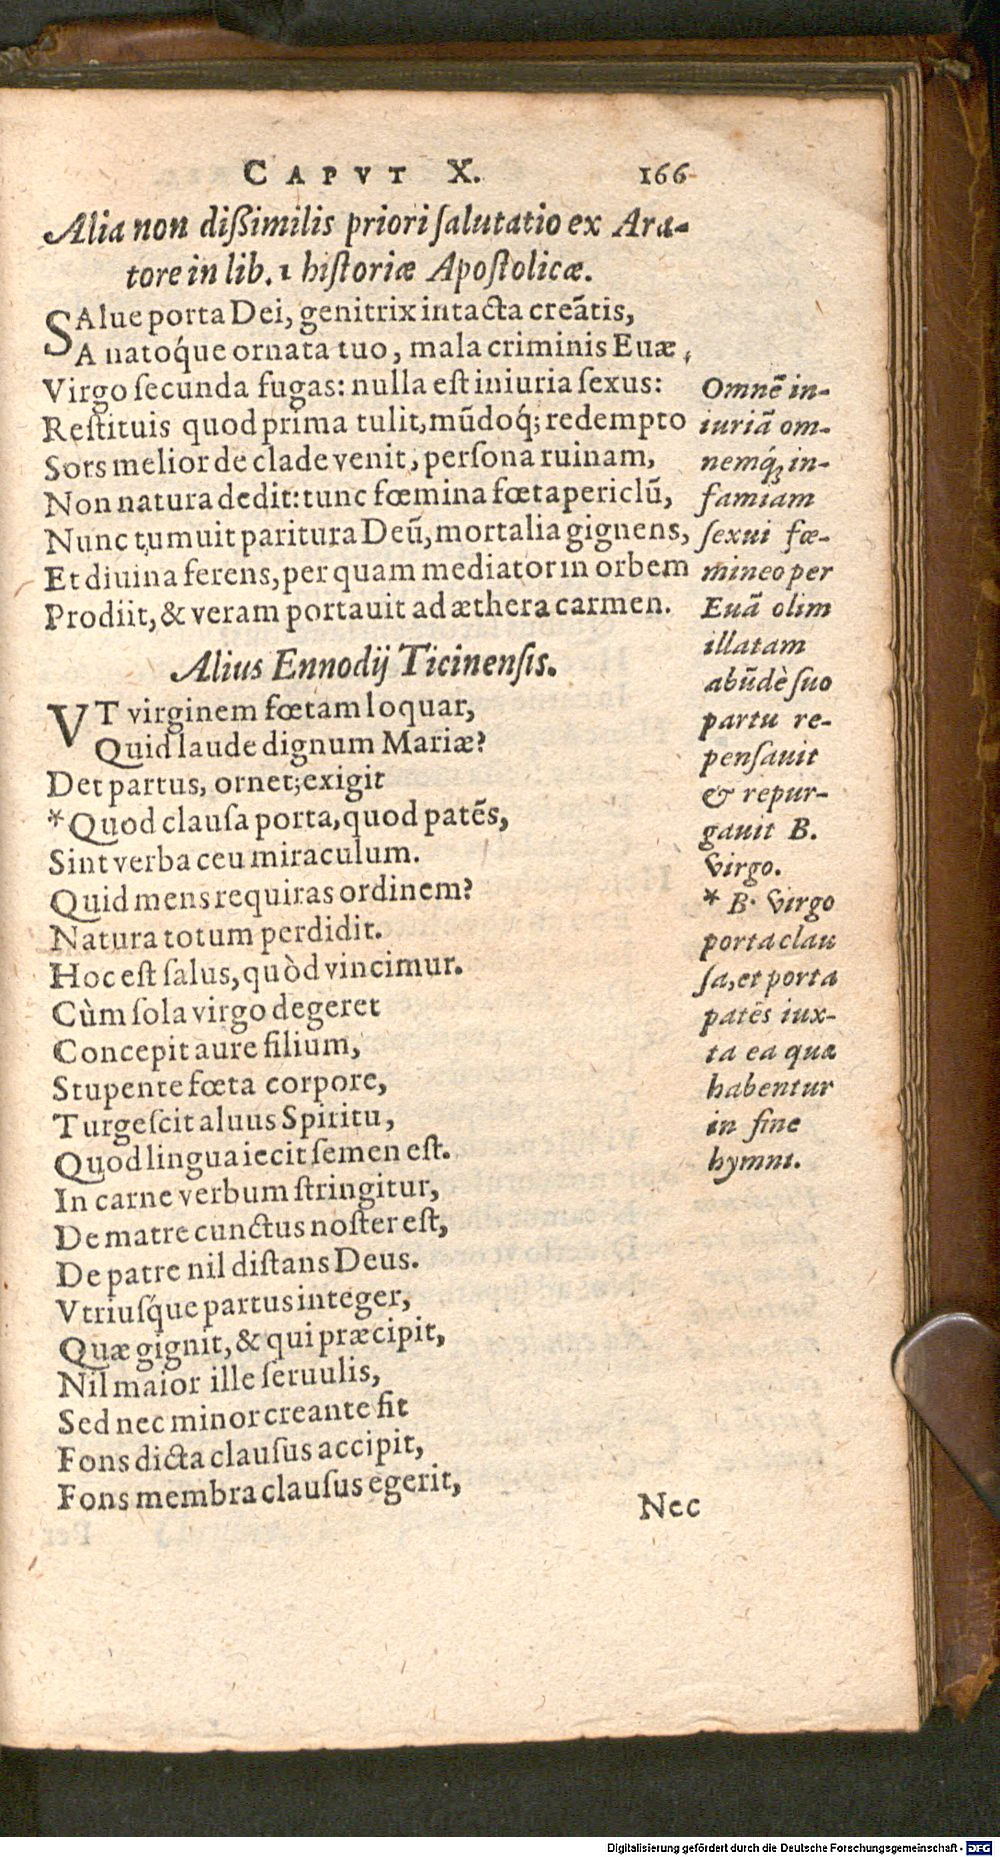 CAPVT X. 166
Alia non dißimilis priori ſalutatio ex Ara-
tore in lib. 1 hiſtoriæ Apoſtolicæ.
SAlue porta Dei, genitrix intacta creãtis,
A natoq́ue ornata tuo, mala criminis Euæ,
Virgo ſecunda fugas: nulla eſt iniuria ſexus:
Reſtituis quod prima tulit, mũdoq́; redempto
Sors melior de clade venit, perſona ruinam,
Non natura dedit: tunc fœmina fœta periclũ,
Nunc tumuit paritura Deũ, mortalia gignens,
Et diuina ferens, per quam mediator in orbem
Prodiit, & veram portauit ad æthera carmen.
Alius Ennodij Ticinenſis.
VT virginem fœtam loquar,
Quid laude dignum Mariæ?
Det partus, ornet; exigit
*Quod clauſa porta, quod patẽs,
Sint verba ceu miraculum.
Quid mens requiras ordinem?
Natura totum perdidit.
Hoc eſt ſalus, quòd vincimur.
Cùm ſola virgo degeret
Concepit aure filium,
Stupente fœta corpore,
Turgeſcit aluus Spiritu,
Quod lingua iecit ſemen eſt.
In carne verbum ſtringitur,
De matre cunctus noſter eſt,
De patre nil diſtans Deus.
Vtriuſq́ue partus integer,
Quæ gignit, & qui præcipit,
Nil maior ille ſeruulis,
Sed nec minor creante fit
Fons dicta clauſus accipit,
Fons membra clauſus egerit,
Nec
Omnẽ in-
iuriã om-
nemq́; in-
famiam
ſexui fœ-
mineo per
Euã olim
illatam
abũdè ſuo
partu re-
penſauit
& repur-
gauit B.
Virgo.
* B. Virgo
porta clau
ſa, et porta
patẽs iux-
ta ea quæ
habentur
in fine
hymni.
Digitalisierung gefördert durch die Deutsche Forschungsgemeinschaft - DFG